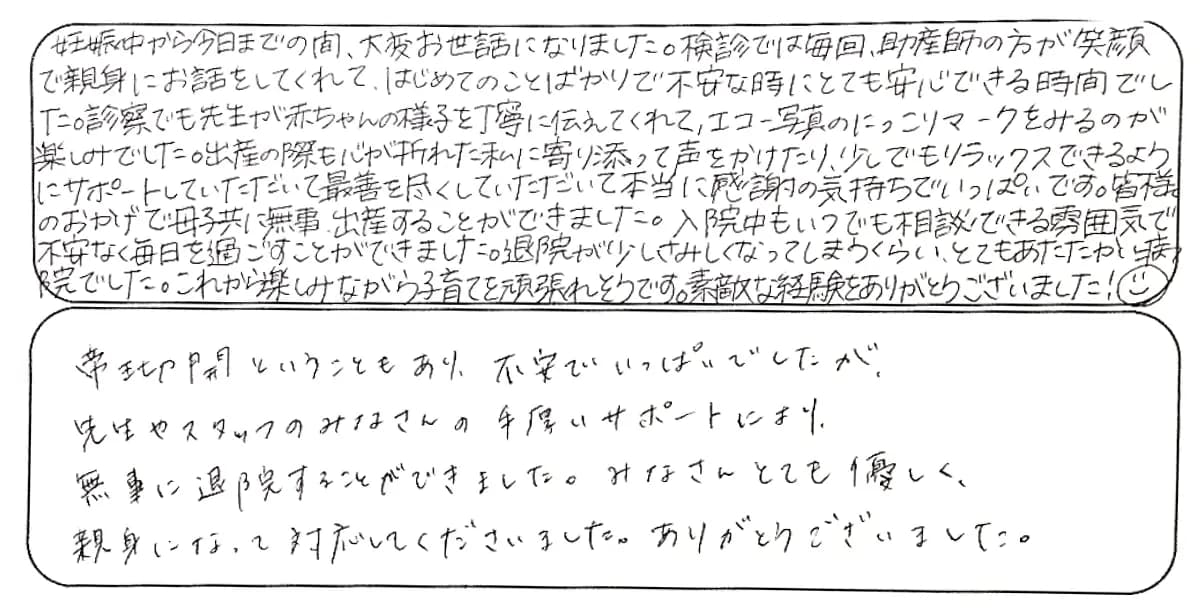 妊娠中から今日までの間、大変お世話になりました。検診では毎回、助産師の方が笑顔
で親身にお話をしてくれて、はじめてのことばかりで不安な時にとても安心できる時間でし
た。診察でも先生が赤ちゃんの様子を丁寧に伝えてくれて、エコー写真のにっこりマークをみるのが
楽しみでした。出産の際も心が折れた私に寄り添って声をかけたり、少しでもリラックスできるよう
にサポートしていただいて最善を尽くしていただいて本当に感謝の気持ちでいっぱいです。皆様
のおかげで母子共に無事、出産することができました。入院中もいつでも相談できる雰囲気で
不安なく毎日を過ごすことができました。退院が少しさみしくなってしまうくらい、とてもあたたかい病
院でした。これから楽しみながら子育てを頑張れそうです。素敵な経験をありがとうございました!
帝王切開ということもあり、不安でいっぱいでしたが、
先生やスタッフのみなさんの手厚いサポートにより、
無事に退院することができました。みなさんとても優しく、
親身になって対応してくださいました。ありがとうございました。